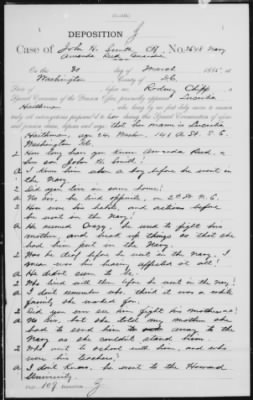 DEPOSITION
Case of John H. Smith No. 2618 Navy
Amanda Reid
On this 30 day of March 188
Washington County of D.C.
State of before me, Rodney
Special Examiner of the Pension Office, personally appeared Lucinda
Hartham who, being by me first duly sworn to answer
truly all interrogatories propounded to her during this Special Examination of aforesaid
pension claim, deposes and says: that her name is Lucinda
Hartham, age 64, Washer, 141 A St. S.E.
Washington D.C.
Q How long have you known Amanda Reid &
her son John H. Smith?
A I knew him when a boy before he went in
the Navy.
Q Did you live in same house?
A No sir, he lived opposite, on 2nd St. S.E.
Q How were his habits and actions before
he went in the Navy?
A He seemed crazy. He used to fight his
mother, and break up things so that she
had him put in the Navy.
Q Was he deaf before he went in the Navy. I
mean was his hearing affected at all?
A He didn't seem to be.
Q Who lived with them before he went in the navy?
A I don't remember who, think it was a white
family she worked for.
Q Did you ever see him fight his mother?
A No Sir, but she told my mother she
had to send him away to the
Navy as she couldn't stand him.
Q Who went to school with him, and who
were his teachers?
A I don't know. he went to the Howard
University.
Page 109 Deposition